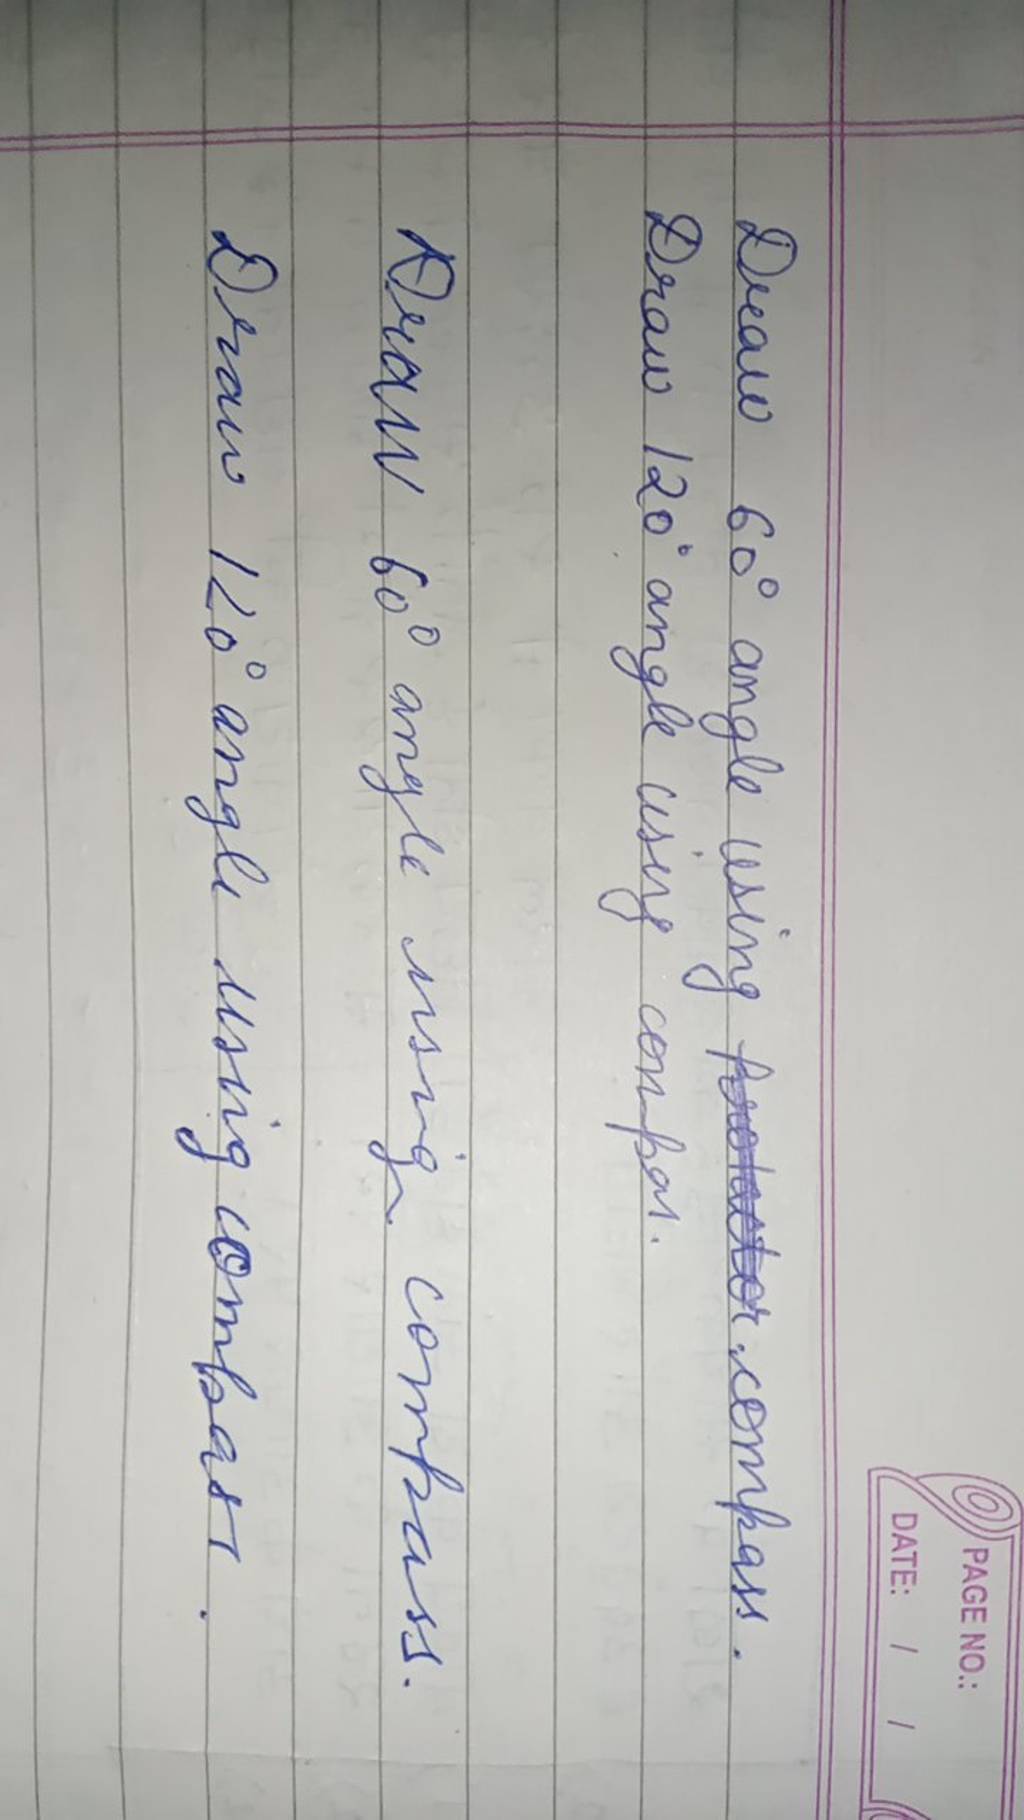 PAGE NO.:
DATE: / /
Draw 60° angle using compass.
Draw 120° angle using compas.
Draw 60° angle using compass.
Draw 120° angle using compass.